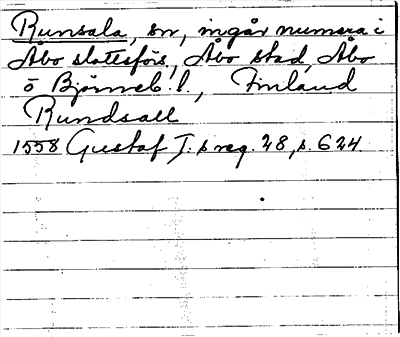 Runsala, sn, ingår numera i
Åbo slottsförs, Åbo stad, Åbo
o Björneb. l., Finland
Rundsall
1558 Gustaf I:s reg. 28, s. 624